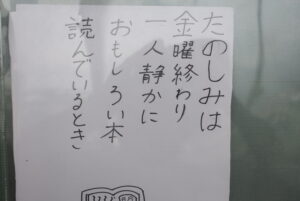 たのしみは
金曜終わり
一人静かに
おもしろい本
読んでいるとき